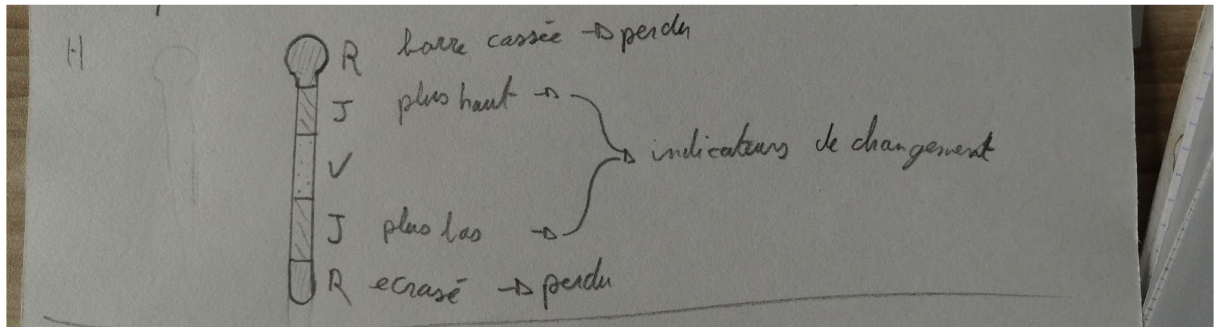 H
R barre cassée → perdu
J plus haut →
V
indicateurs de changement
J plus bas →
R ecrasé → perdu